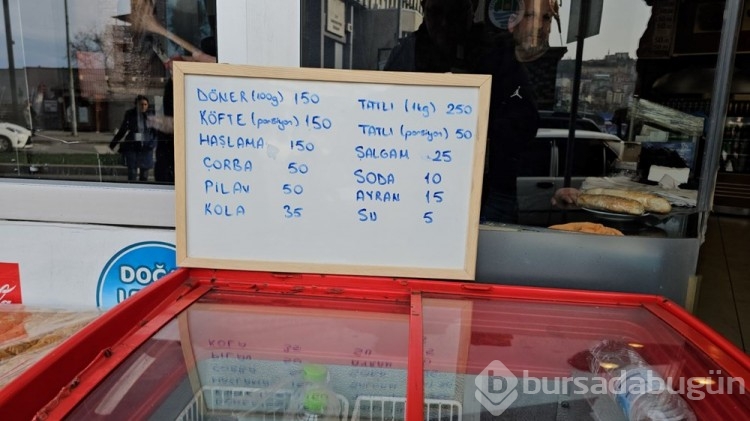 DÖNER (100g) 150
KÖFTE (porsiyon) 150
HAŞLAMA 150
ÇORBA 50
PİLAV 50
KOLA 35
TATLI (1kg) 250
TATLI (porsiyon) 50
ŞALGAM 25
SODA 10
AYRAN 15
SU 5
DOĞ
bursadabugün